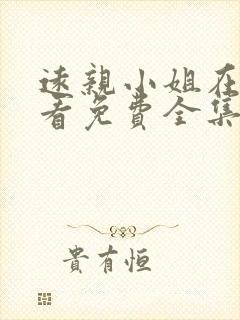 速親小姐在
看免費全集
貴有恒